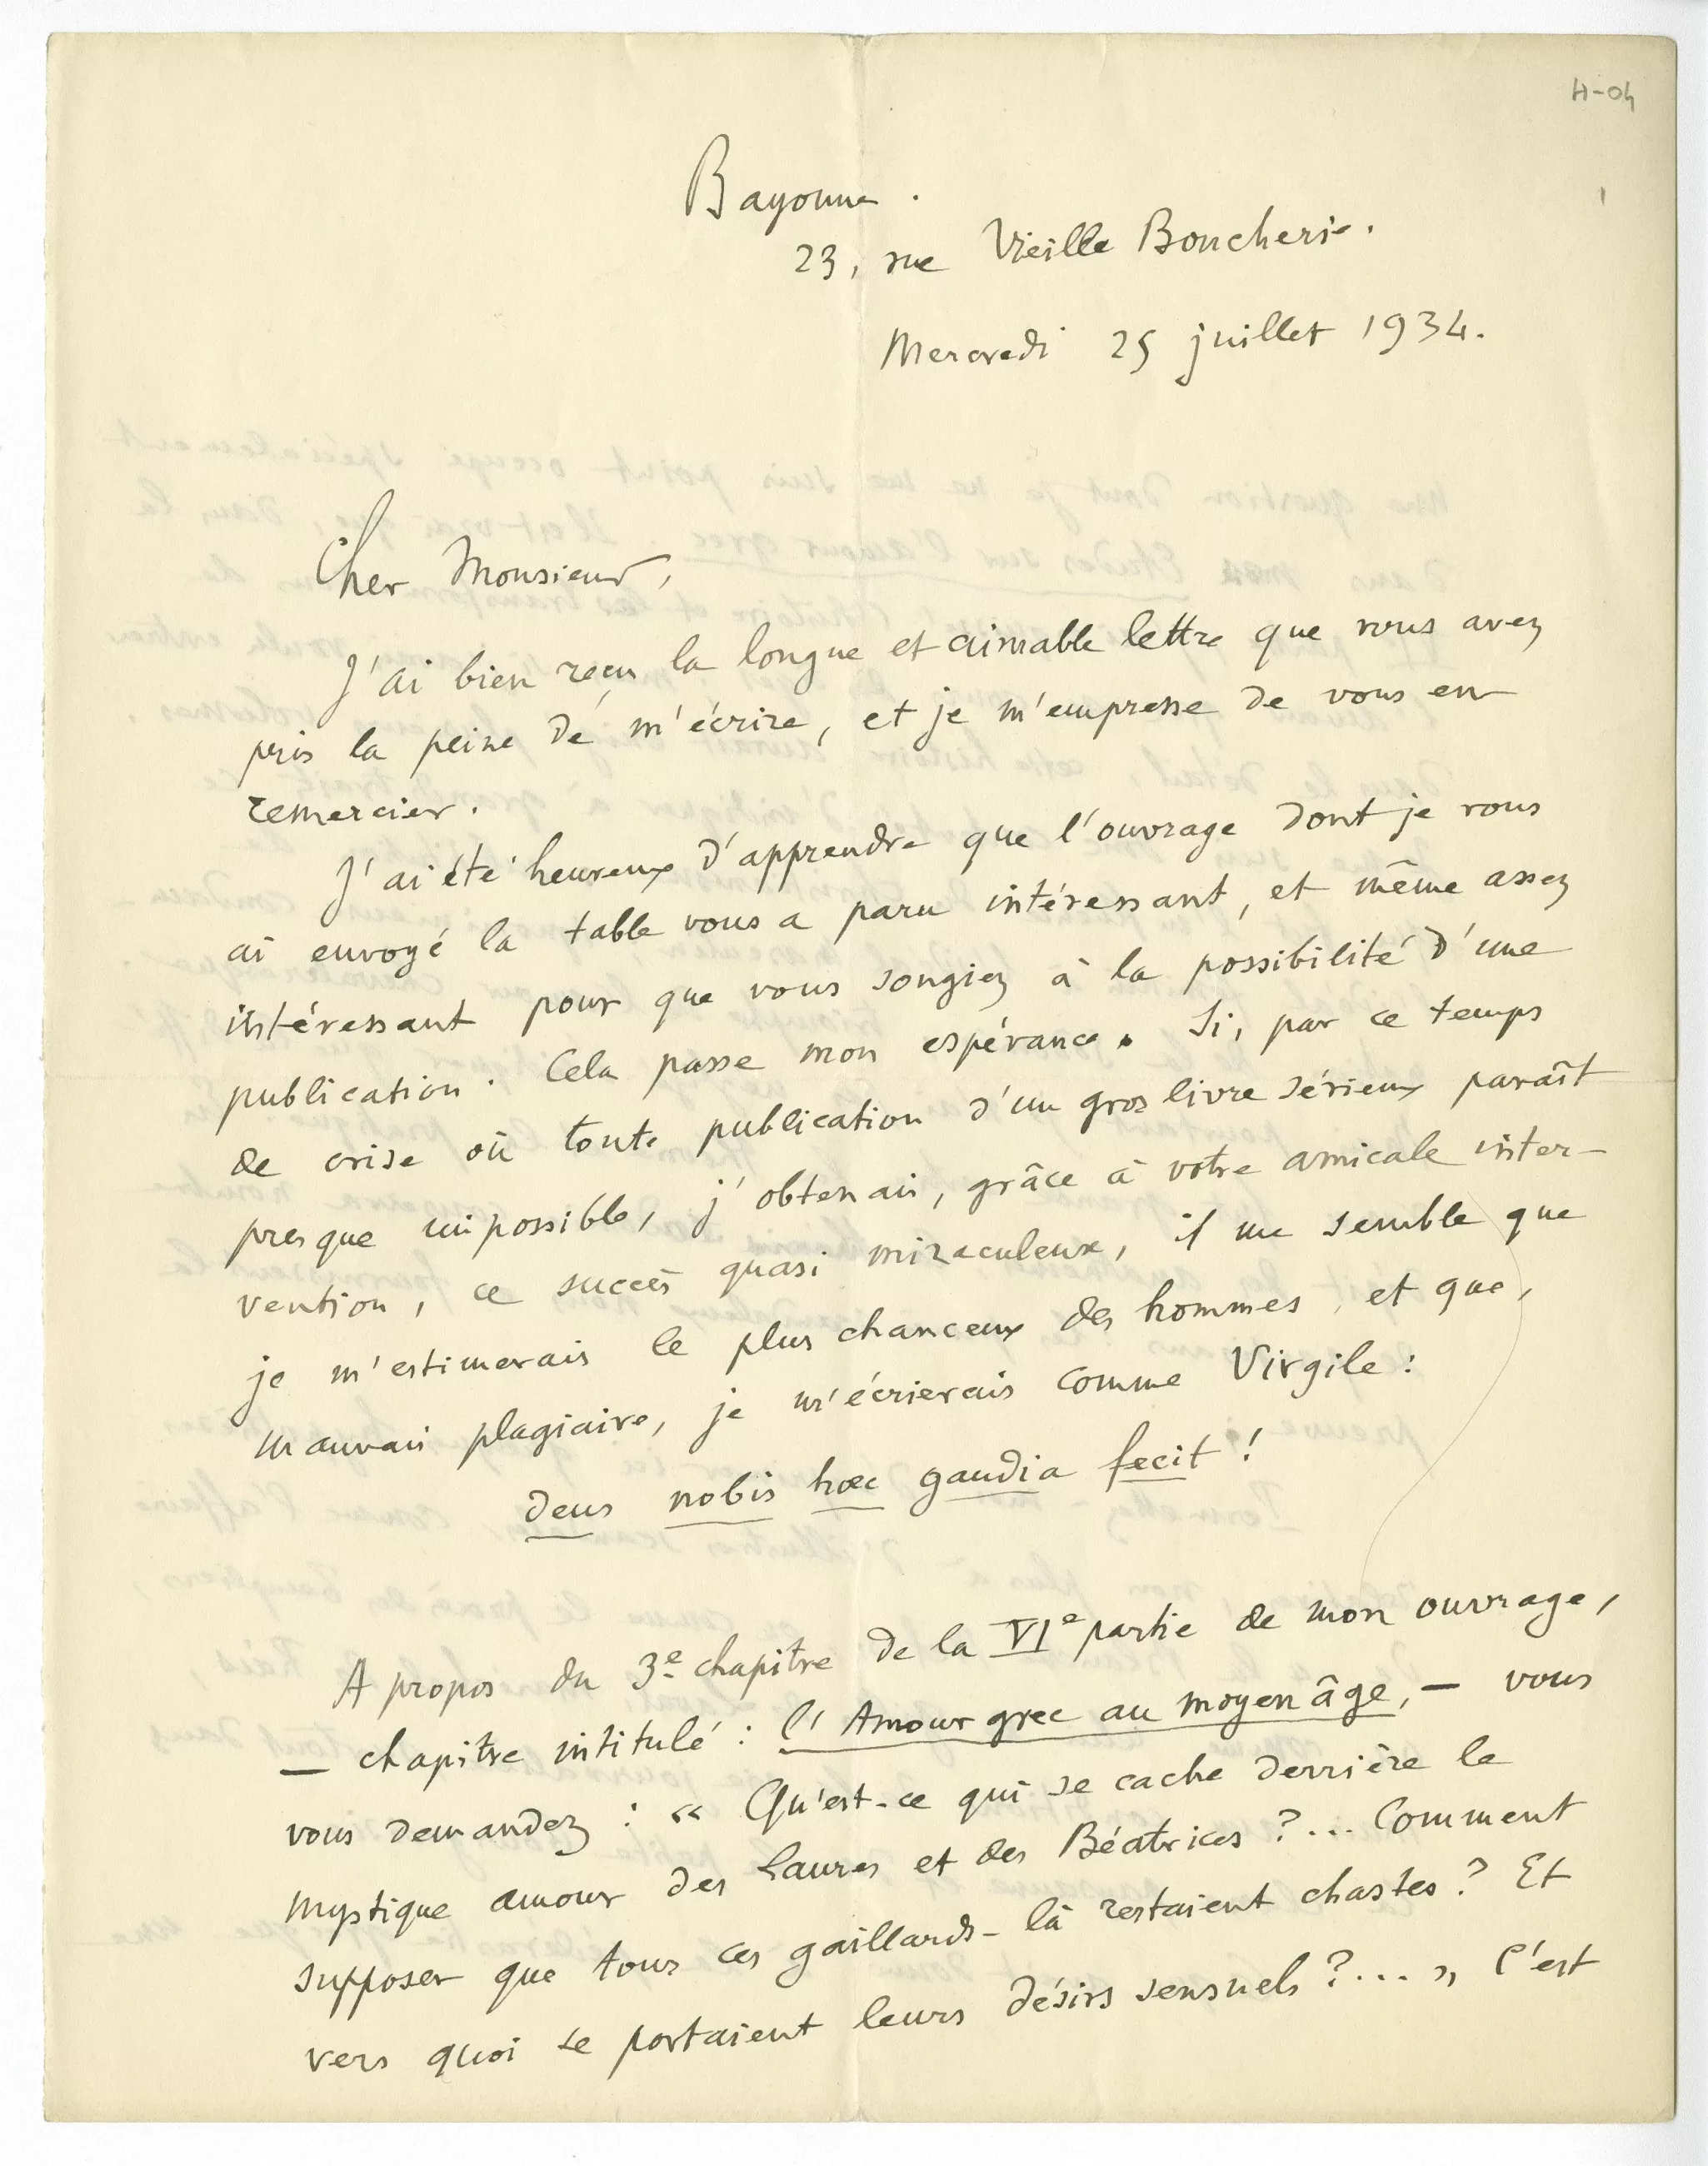 H-04
Bayonne.
23, rue Vieille Boucherie.
Mercredi 25 juillet 1934.
Cher Monsieur,
J'ai bien reçu la longue et aimable lettre que vous avez
pris la peine de m'écrire, et je m'empresse de vous en
remercier.
J'ai été heureux d'apprendre que l'ouvrage dont je vous
ai envoyé la table vous a paru intéressant, et même assez
intéressant pour que vous songiez à la possibilité d'une
publication. Cela passe mon espérance. Si, par ce temps
de crise où toute publication d'un gros livre sérieux paraît
presque impossible, j'obtenais, grâce à votre amicale inter-
vention, ce succès quasi miraculeux, il me semble que
je m'estimerais le plus chanceux des hommes, et que,
mauvais plagiaire, je m'écrierais comme Virgile :
Deus nobis hæc gaudia fecit !
A propos du 3e chapitre de la VIe partie de mon ouvrage,
— chapitre intitulé : l'Amour grec au moyen âge, — vous
vous demandez : « Qu'est-ce qui se cache derrière le
mystique amour des Laures et des Béatrices ?... Comment
supposer que tous ces gaillards-là restaient chastes ? Et
vers quoi se portaient leurs désirs sensuels ?... » C'est